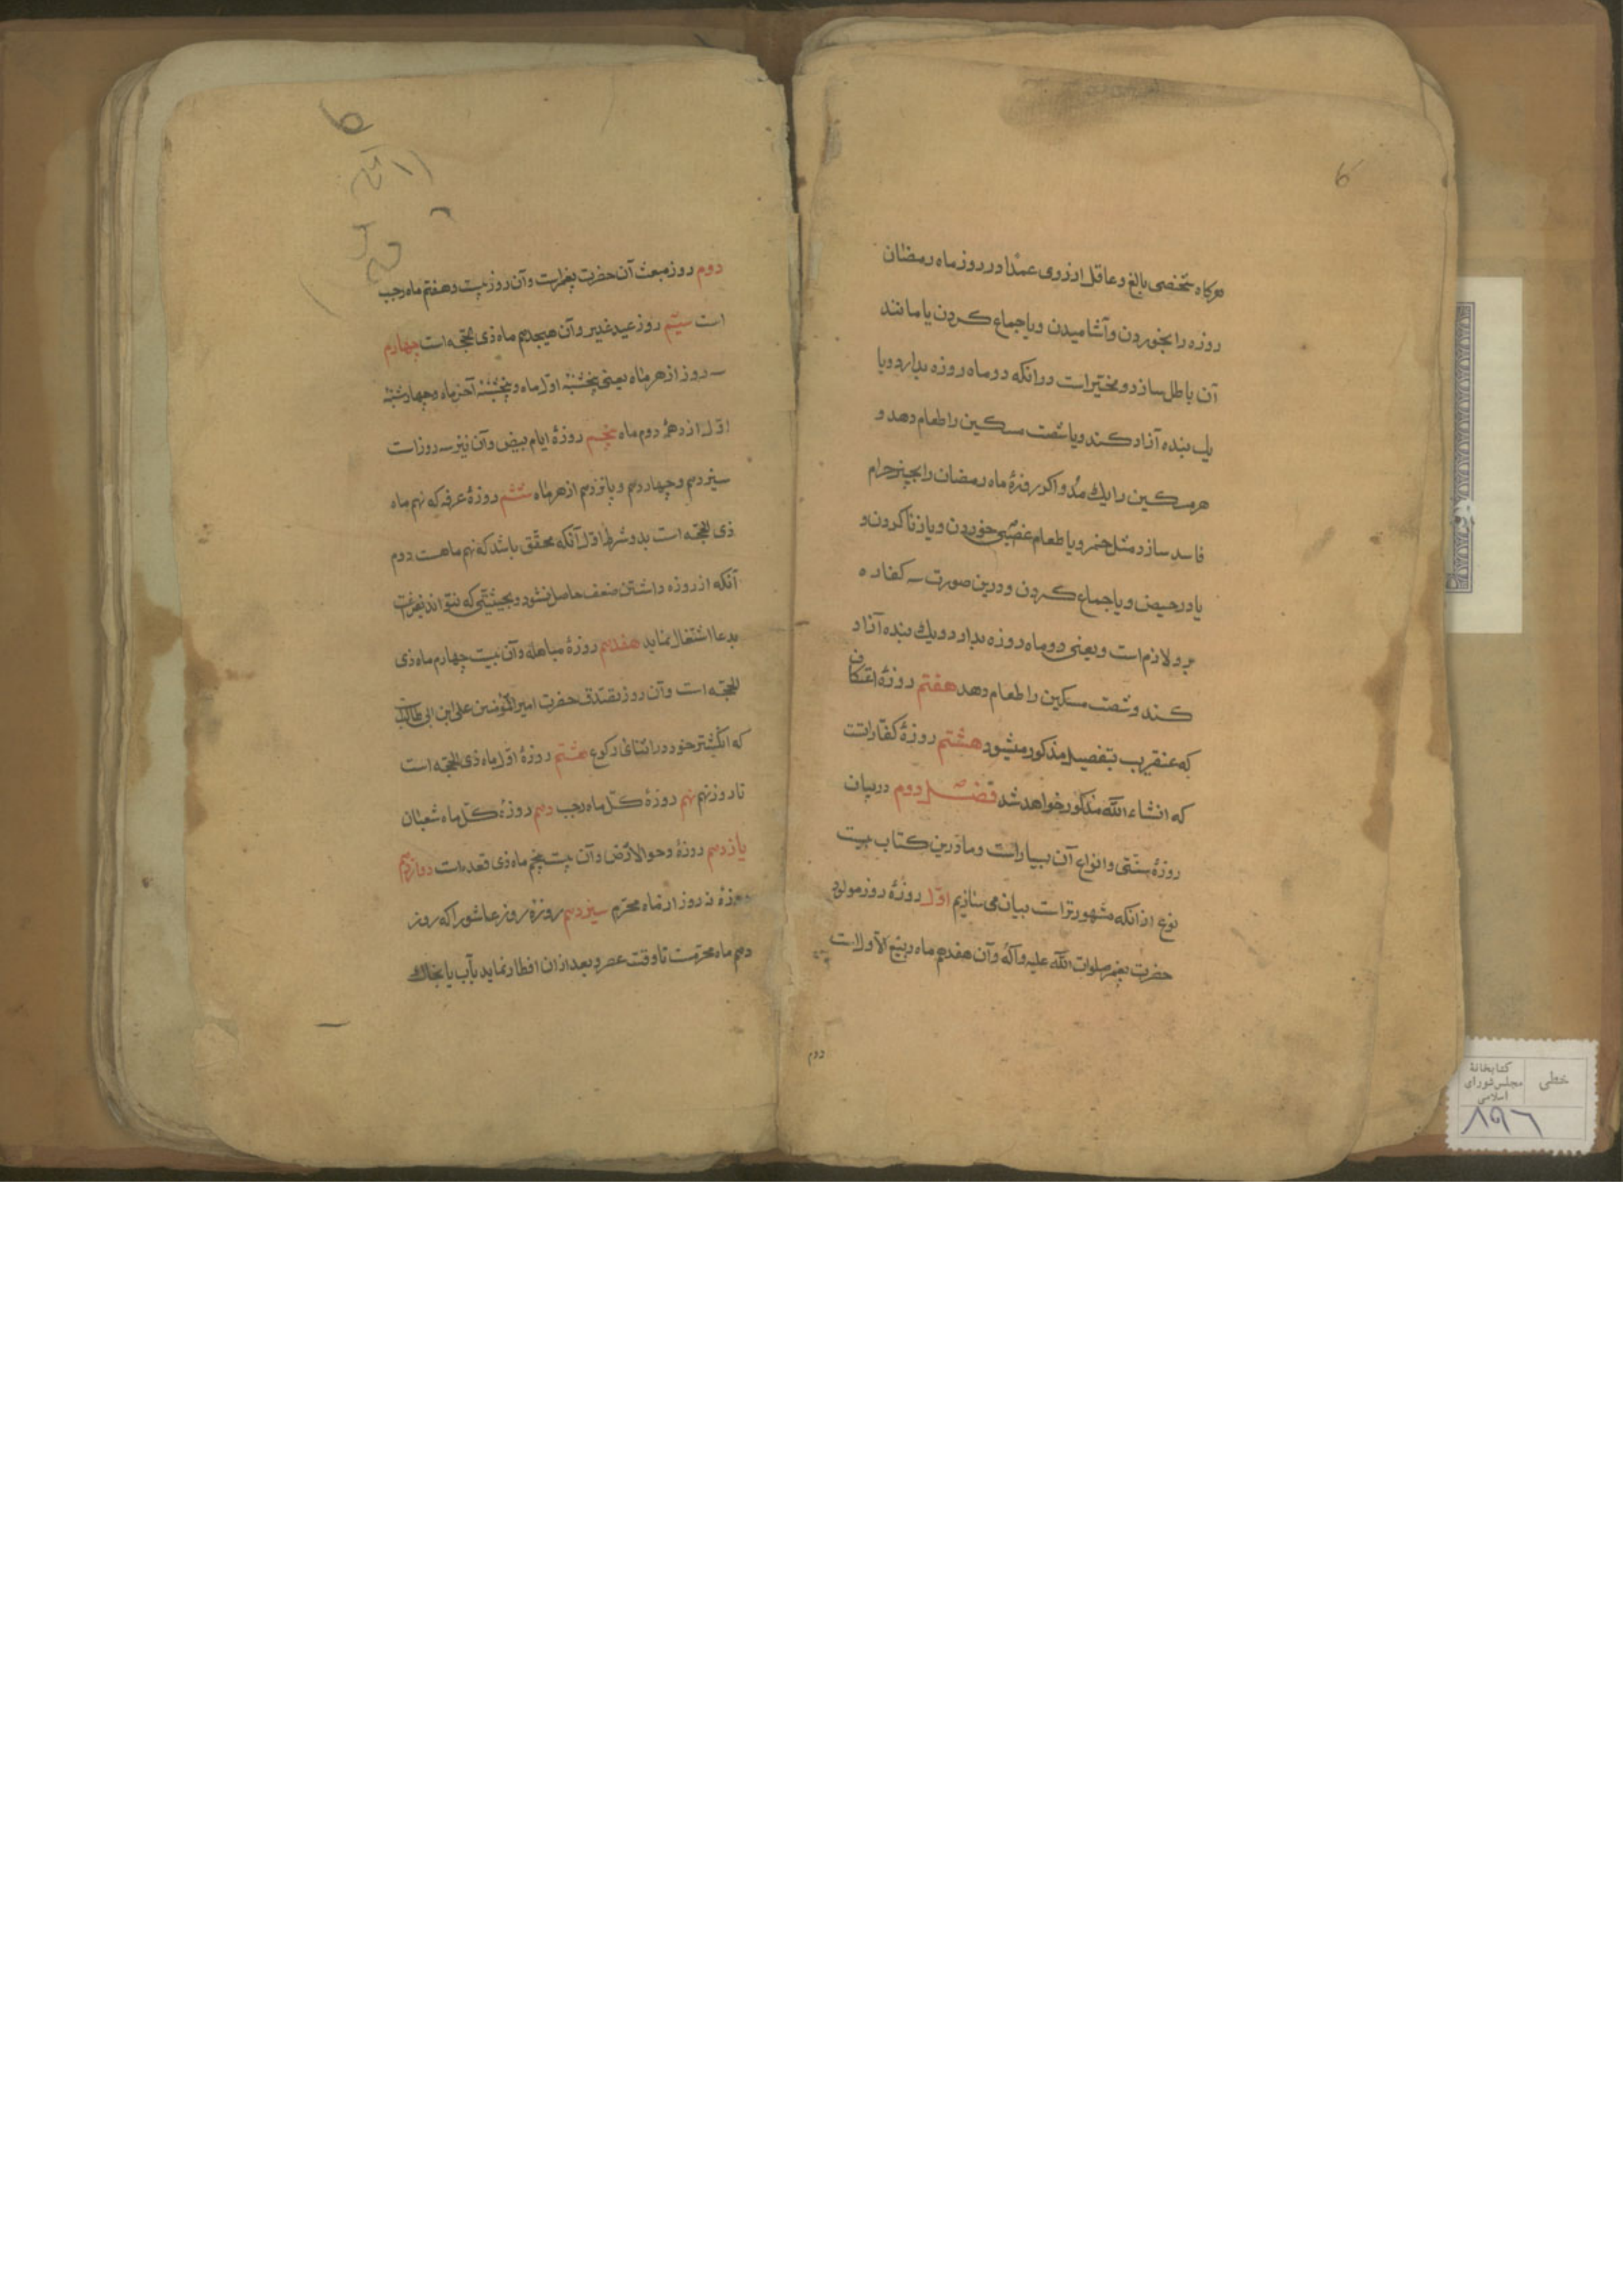 هرکاه شخصی بالغ و عاقل از روی عمدا در روز ماه رمضان
روزه را بخوردن و آشامیدن و یا جماع کردن یا مانند
آن باطل سازد و مخیر است در انکه دو ماه روزه بدارد و یا
یک بنده آزاد کند و یا شصت مسکین را طعام دهد و
هر مسکین را یک مد و اکر روزهٔ ماه رمضان را بچیز حرام
فاسد سازد مثل خمر و یا طعام غصبی خوردن و یا زنا کردن و
یا در حیض و یا جماع کردن و درین صورت سه کفاره
برو لازم است و یعنی دو ماه روزه بدارد و یک بنده آزاد
کند و شصت مسکین را طعام دهد هفتم روزهٔ اعتکاف
که عنقریب بتفصیل مذکور میشود هشتم روزهٔ کفارانست
که انشاء الله مذکور خواهد شد فصل دوم در بیان
روزهٔ سنتی و انواع آن بسیار است و ما درین کتاب بیست
نوع از انکه مشهورتر است بیان می سازیم اول روزهٔ روز مولود
حضرت پیغمبر صلوات الله علیه و آله و آن هفدهم ماه ربیع الاولست
دوم
دوم روز مبعث آن حضرت پیغمبر است و آن روز بیست و هفتم ماه رجب
است سیّم روز عید غدیر و آن هیجدهم ماه ذی الحجه است چهارم
سه روز از هر ماه یعنی پنجشنبه اول ماه و پنجشنبه آخر ماه و چهارشنبه
اول از دههٔ دوم ماه پنجم روزهٔ ایام بیض و آن نیز سه روز است
سیزدهم و چهاردهم و پانزدهم از هر ماه ششم روزهٔ عرفه که نهم ماه
ذی الحجه است بدو شرط اول آنکه محقق باشد که نهم ماهست دوم
آنکه از روزه داشتن ضعف حاصل نشود و بحیثیتی که نتواند بفراغت
بدعا اشتغال نماید هفدهم روزهٔ مباهله و آن بیست چهارم ماه ذی
الحجه است و آن روز تصدق حضرت امیر المؤمنین علی ابن ابی طالب
که انکشتر خود در اثنای رکوع هشتم روزهٔ اول ماه ذی الحجه است
تا روز نهم نهم روزهٔ کل ماه رجب دهم روزهٔ کل ماه شعبان
یازدهم روزهٔ دحو الارض و آن بیست پنجم ماه ذی قعده است دوازدهم
روزهٔ نه روز از ماه محرم سیزدهم روزهٔ روز عاشورا که روز
دهم ماه محرمست تا وقت عصر و بعد از ان افطار نماید بآب یا بخاک
کتابخانهٔ
مجلس شورای
اسلامی
خطی
۸۹۶